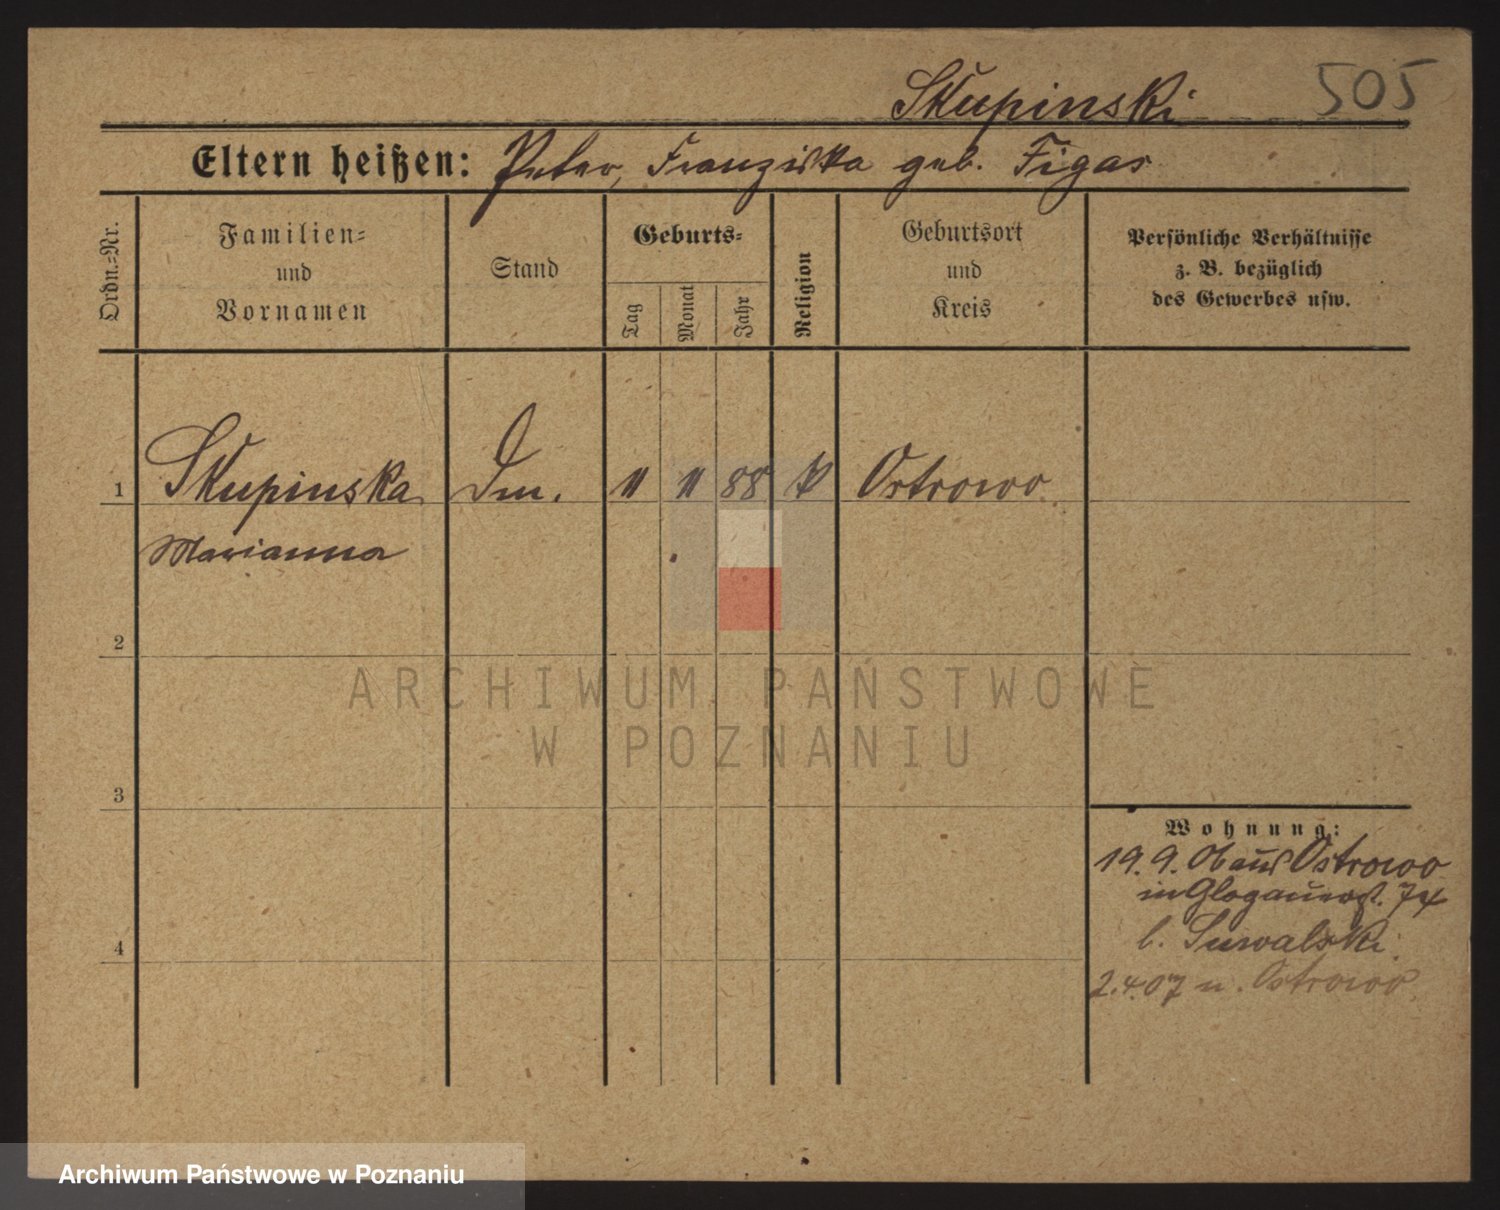 Skupinski 505
Eltern heißen: Peter, Franziska geb. Figas
Ordn.-Nr.
Familien-
und
Vornamen
Stand
Geburts-
Tag
Monat
Jahr
Religion
Geburtsort
und
Kreis
Persönliche Verhältnisse
z. B. bezüglich
des Gewerbes usw.
1 Skupinska Dm. 11 11 88 k Ostrowo
Marianna
2
3
4
Wohnung:
19.9.06 aus Ostrowo
in Glogauerst. 74
b. Suwalski
2.4.07 n. Ostrowo
ARCHIWUM PAŃSTWOWE
W POZNANIU
Archiwum Państwowe w Poznaniu